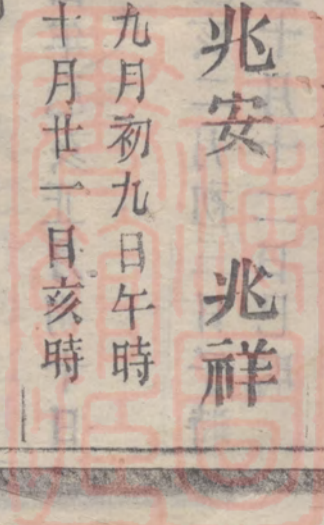 兆安 兆祥
九月初九日午時
十月廿一日亥時